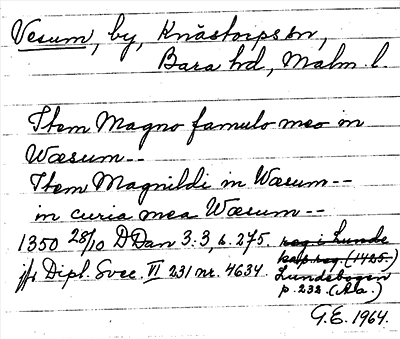 Vesum, by, Knästorps sn,
Bara hd, Malm. l.
Item Magno famulo meo in
Wæsum--
Item Magnildi in Wæsum--
in curia mea Wæsum--
1350 28/10 DDan 3:3, s. 275. reg i Lunde
jfr Dipl. Svec. VI 231 nr. 4634. kap. reg. (1425.)
Lundebogen
p. 232. (Aa.)
G.E. 1964.